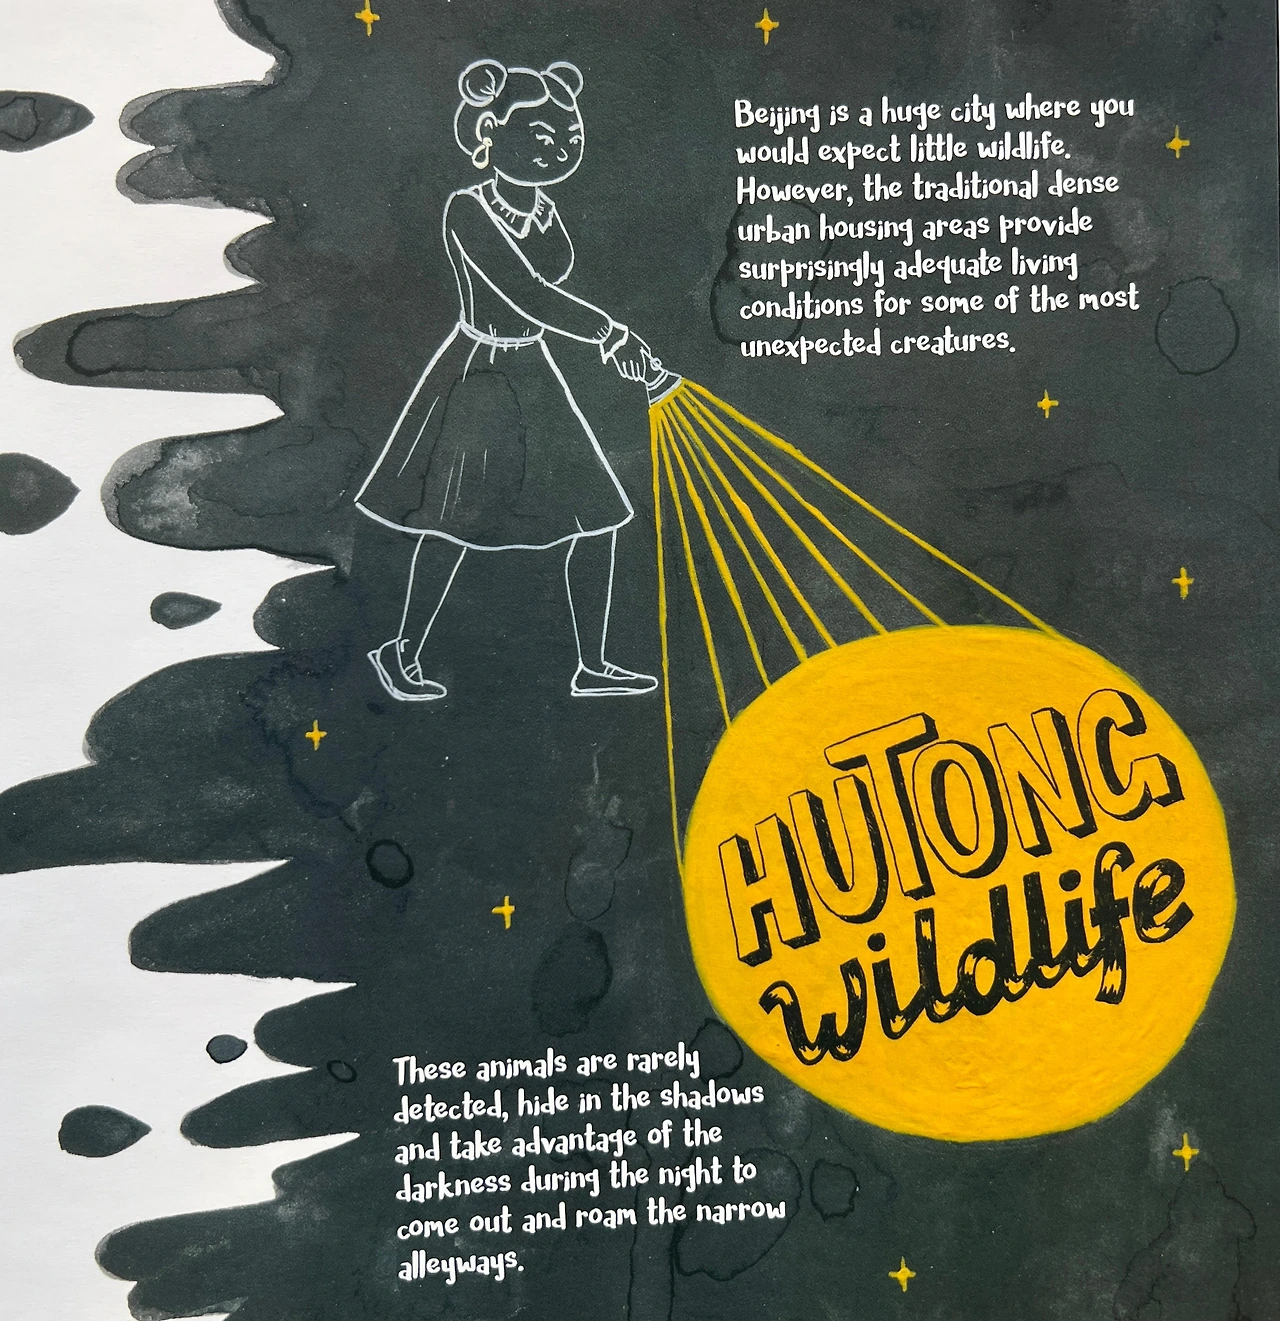 Beijing is a huge city where you
would expect little wildlife.
However, the traditional dense
urban housing areas provide
surprisingly adequate living
conditions for some of the most
unexpected creatures.
HUTONG
wildlife
These animals are rarely
detected, hide in the shadows
and take advantage of the
darkness during the night to
come out and roam the narrow
alleyways.